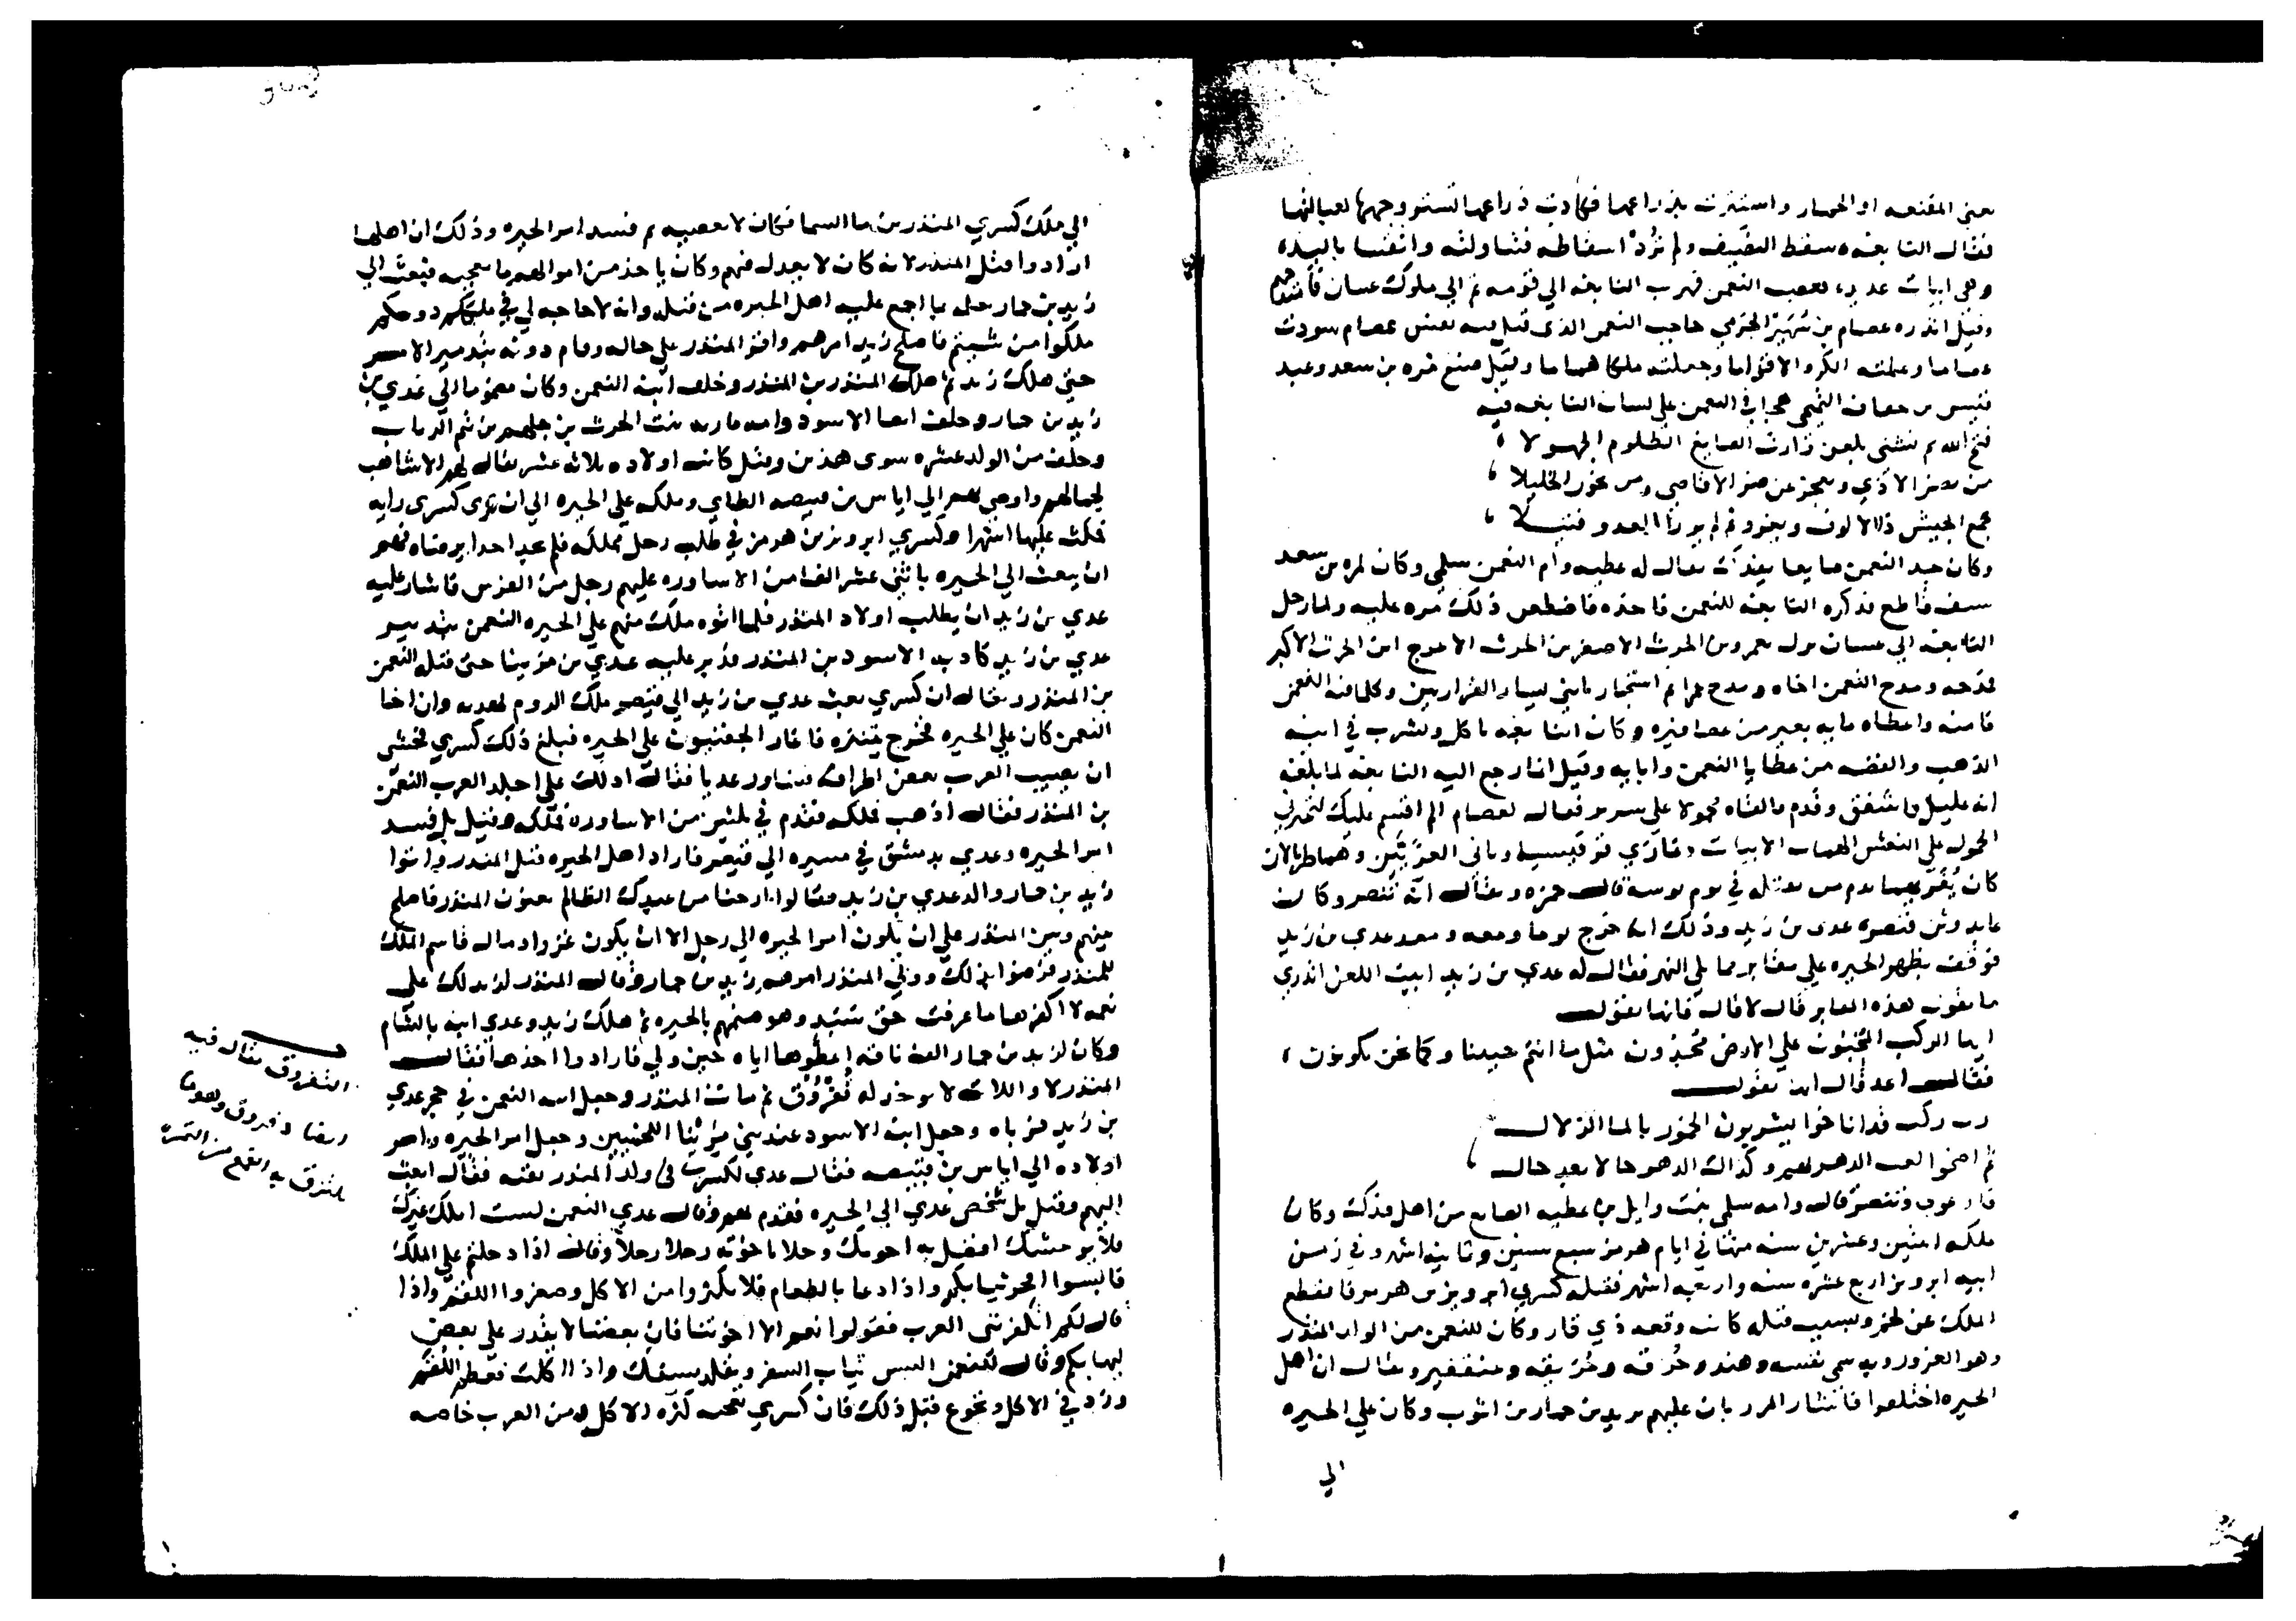 يعني المقنعه او الخمار واستترت بذراعها فكادت ذراعها تستر وجهها لعبالتها
فقال النابغه سقط النصيف ولم ترد اسقاطه فتناولته واتقتنا باليد
وهي ابيات عديده فغضب النعمن فهرب النابغه الي قومه ثم الي ملوك غسان فامتدحهم
وقيل انذره عصام بن شهبر الجرمي حاجب النعمن الذي قيل فيه نفس عصام سودت
عصاما وعلمته الكر والاقداما وجعلته ملكا هماما وقيل صنع مره بن سعد وعبد
قيس بن خفاف التميمي هجا في النعمن علي لسان النابغه فيه
قبح الله ثم ثني بلعن وارث الصايغ الظلوم الجهولا
من يضر الاذي ويعجز عن ضر الاقاصي ومن يخون الخليلا
يجمع الجيش ذا الالوف ويغزو ثم لا يرزا العدو فتيلا
وكان جد النعمن صايغا بفدك يقال له عطيه وام النعمن سلمي وكان لمره بن سعد
سيف قاطع فذكره النابغه للنعمن فاخذه فاضطغن ذلك مره عليه ولما رحل
النابغه الي غسان نزل بعمرو بن الحرث الاصغر بن الحرث الاعرج ابن الحرث الاكبر
فمدحه ومدح النعمن اخاه ومدح ثم استجار بابني سيار الفزاريين وكلما فيه النعمن
فامنه واعطاه مايه بعير من عصافيره وكان النابغه ياكل ويشرب في انيه
الذهب والفضه من عطايا النعمن وابايه وقيل انما رجع اليه النابغه لما بلغه
انه عليل فاشفق وقدم فالفاه محمولا علي سرير فقال لعصام الم اقسم عليك لتخبرني
المحمول علي النعش الهمام الابيات وباني الغريين وهما طربالان
كان يغريهما بدم من يقتله في يوم بوسه قال حمزه ويقال انه تنصر وكان
عابد وثن فنصره عدي بن زيد وذلك انه خرج يوما ومعه عدي بن زيد
فوقف بظهر الحيره علي مقابر مما يلي النهر فقال له عدي بن زيد ابيت اللعن اتدري
ما تقول هذه المقابر قال لا قال فانها تقول
ايها الركب المخبون علي الارض مجدون مثل ما انتم حيينا وكما نحن تكونون
فقال اعد قال انها تقول
رب ركب قد اناخوا يشربون الخمر بالما الزلال
ثم اضحوا لعب الدهر بهم وكذاك الدهر حالا بعد حال
فارعوي وتنصر قال وامه سلمي بنت وايل بن عطيه الصايغ من اهل فدك وكان
ملكه اثنين وعشرين سنه منها في ايام هرمز سبع سنين وثمانيه اشهر وفي زمن
ابنه ابرويز اربع عشره سنه واربعه اشهر فقتله كسري ابرويز بن هرمز فانقطع
الملك عن لخم وبسبب قتله كانت وقعه ذي قار وكان للنعمن من الولد المنذر
وهو الغرور وبه سمي نفسه وهند وحرقه وحريقه وعنقفير ويقال ان اهل
الحيره اختلفوا فاشار المرزبان عليهم بزيد بن حمار بن ايوب وكان علي الحيره
الي
الي ملك كسري المنذر بن ما السما فكان لا يعصيه ثم فسد امر الحيره وذلك ان اهلها
ارادوا قتل المنذر لانه كان لا يعدل فيهم وكان ياخذ من اموالهم ما يعجبه فبعث الي
زيد بن حمار بما اجمع عليه اهل الحيره من قتله وانه لا حاجه لي في ملككم دونكم
ملكوا من شيتم فاصلح زيد امرهم واقر المنذر علي حاله وقام دونه بتدبير الامر
حتي هلك زيد ثم هلك المنذر بن المنذر وخلف ابنه النعمن وكان مضموما الي عدي بن
زيد بن حمار وخلف ايضا الاسود وامه ماريه بنت الحرث بن جلهم من تيم الرباب
وخلف من الولد عشره سوي هذين وقيل كانت اولاده ثلاثه عشر يقال لهم الاشاهب
لجمالهم واوصي بهم الي اياس بن قبيصه الطاي وملكه علي الحيره الي ان يري كسري رايه
فمكث عليها اشهرا وكسري ابرويز بن هرمز في طلب رجل يملكه فلم يجد احدا يرضاه فهم
ان يبعث الي الحيره باثني عشر الفا من الاساوره عليهم رجل من الفرس فاشار عليه
عدي بن زيد ان يطلب اولاد المنذر فلما اتوه ملك منهم علي الحيره النعمن بتدبير
عدي بن زيد كاد به الاسود بن المنذر فدبر عليه عدي بن مرينا حتي قتله النعمن
بن المنذر ويقال ان كسري بعث عدي بن زيد الي قيصر ملك الروم بهديه وان اخا
النعمن كان علي الحيره فخرج يتنزه فاغار الجفنيون علي الحيره فبلغ ذلك كسري فخشي
ان يصيب العرب بعض اطرافه فشاور عديا فقال ادلك علي اجلد العرب النعمن
بن المنذر فقال اذهب فملكه فقدم في ثلثين من الاساوره فملكه وقيل بل فسد
امر الحيره وعدي بدمشق في مسيره الي قيصر فاراد اهل الحيره قتل المنذر واتوا
زيد بن حمار والد عدي بن زيد فقالوا ارحنا من عبدك الظالم يعنون المنذر فاصلح
بينهم وبين المنذر علي ان يكون امر الحيره الي رجل الا ان يكون غزو او مال فاسم الملك
للمنذر فرضوا بذلك وولي المنذر امرهم زيد بن حمار وقال المنذر لزيد لك علي
نعمه لا اكفرها ما عرفت حق سبد وهو صنمهم بالحيره ثم هلك زيد وعدي ابنه بالشام
وكان لزيد بن حمار الف ناقه اعطوها اياه حين ولي فارادوا اخذها فقال
المنذر لا واللات لا يوخذ له ثفروق ثم مات المنذر وجعل ابنه النعمن في حجر عدي
بن زيد فرباه وجعل ابنه الاسود عند بني مرينا اللخميين وجعل امر الحيره وامر
اولاده الي اياس بن قبيصه فقال عدي لكسري في ولد المنذر بقيه فقال ابعث
اليهم وقيل بل شخص عدي الي الحيره فقدم بهم وقال عدي للنعمن لست املك غيرك
فلا يوحشنك افضل به اخوتك وخلا باخوته رجلا رجلا وقال اذا دخلتم علي الملك
فالبسوا افخر ثيابكم واذا دعا بالطعام فلا تكثروا من الاكل وصغروا اللقم واذا
قال لكم اتكفونني العرب فقولوا نعم الا اخوتنا فان بعضنا لا يقدر علي بعض
ليهابكم وقال للنعمن البس ثياب السفر وتقلد بسيفك واذا اكلت فعظم اللقم
وزد في الاكل وتجوع قبل ذلك فان كسري تعجبه كثره الاكل من العرب خاصه
الثفروق يقال فيه
ايضا ذفروق وهو ما
يلتزق به القمع من التمره